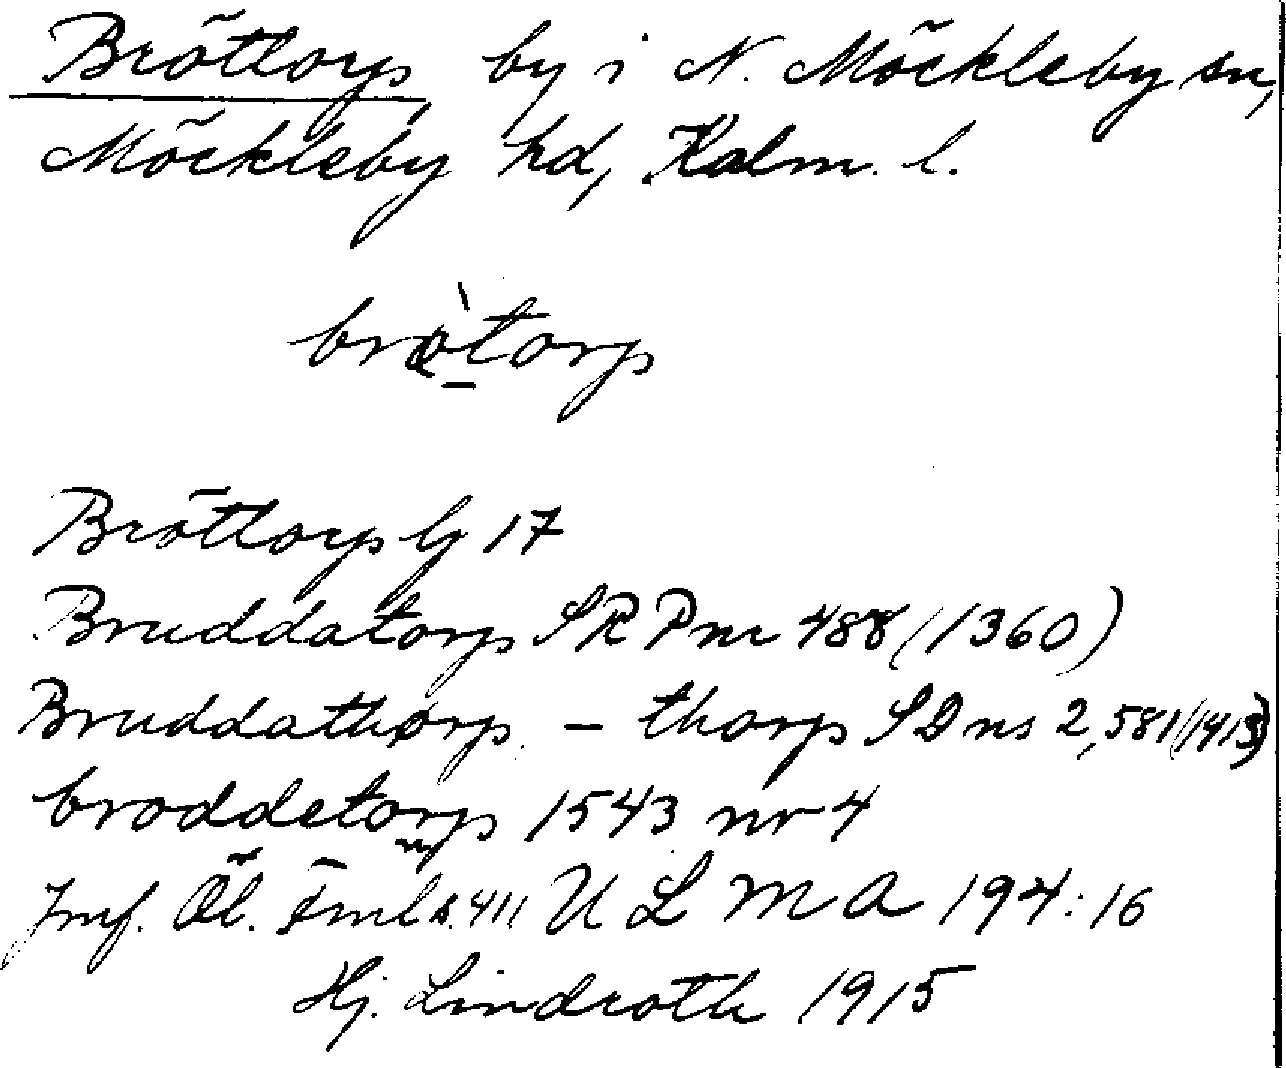 Bröttorp, by i N. Möckleby sn,
Möckleby hd, Kalm. l.
bròtorp
Bröttorp G 17
Bruddatorp SRPnr 488 (1360)
Bruddathorp, - thorp SDns 2,581 (1413)
broddetorp 1543 nr 4
Jmf. Öl. Fml s. 411 ULMA 194:16
Hj. Lindroth 1915